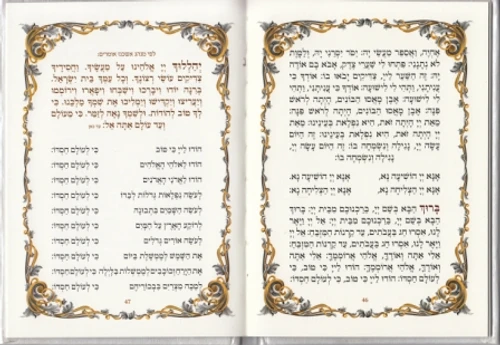 אֶחְיֶה, וַאֲסַפֵּר מַעֲשֵׂי יָהּ: יַסֹּר יִסְּרַנִּי יָּהּ, וְלַמָּוֶת
לֹא נְתָנָנִי: פִּתְחוּ לִי שַׁעֲרֵי צֶדֶק, אָבֹא בָם אוֹדֶה
יָהּ: זֶה הַשַּׁעַר לַיְיָ, צַדִּיקִים יָבֹאוּ בוֹ: אוֹדְךָ כִּי
עֲנִיתָנִי, וַתְּהִי לִי לִישׁוּעָה: אוֹדְךָ כִּי עֲנִיתָנִי, וַתְּהִי
לִי לִישׁוּעָה: אֶבֶן מָאֲסוּ הַבּוֹנִים, הָיְתָה לְרֹאשׁ
פִּנָּה: אֶבֶן מָאֲסוּ הַבּוֹנִים, הָיְתָה לְרֹאשׁ פִּנָּה:
מֵאֵת יְיָ הָיְתָה זֹּאת, הִיא נִפְלָאת בְּעֵינֵינוּ: מֵאֵת
יְיָ הָיְתָה זֹּאת, הִיא נִפְלָאת בְּעֵינֵינוּ: זֶה הַיּוֹם
עָשָׂה יְיָ, נָגִילָה וְנִשְׂמְחָה בוֹ: זֶה הַיּוֹם עָשָׂה יְיָ,
נָגִילָה וְנִשְׂמְחָה בוֹ:
אָנָּא יְיָ הוֹשִׁיעָה נָּא, אָנָּא יְיָ הוֹשִׁיעָה נָּא:
אָנָּא יְיָ הַצְלִיחָה נָא, אָנָּא יְיָ הַצְלִיחָה נָא:
בָּרוּךְ הַבָּא בְּשֵׁם יְיָ, בֵּרַכְנוּכֶם מִבֵּית יְיָ: בָּרוּךְ
הַבָּא בְּשֵׁם יְיָ, בֵּרַכְנוּכֶם מִבֵּית יְיָ: אֵל יְיָ וַיָּאֶר
לָנוּ, אִסְרוּ חַג בַּעֲבֹתִים, עַד קַרְנוֹת הַמִּזְבֵּחַ: אֵל יְיָ
וַיָּאֶר לָנוּ, אִסְרוּ חַג בַּעֲבֹתִים, עַד קַרְנוֹת הַמִּזְבֵּחַ:
אֵלִי אַתָּה וְאוֹדֶךָּ, אֱלֹהַי אֲרוֹמְמֶךָּ: אֵלִי אַתָּה
וְאוֹדֶךָּ, אֱלֹהַי אֲרוֹמְמֶךָּ: הוֹדוּ לַיְיָ כִּי טוֹב, כִּי
לְעוֹלָם חַסְדּוֹ: הוֹדוּ לַיְיָ כִּי טוֹב, כִּי לְעוֹלָם חַסְדּוֹ:
46
לפי מנהג אשכנז אומרים:
יְהַלְלוּךָ יְיָ אֱלֹהֵינוּ עַל מַעֲשֶׂיךָ, וַחֲסִידֶיךָ
צַדִּיקִים עוֹשֵׂי רְצוֹנֶךָ, וְכָל עַמְּךָ בֵּית יִשְׂרָאֵל,
בְּרִנָּה יוֹדוּ וִיבָרְכוּ וִישַׁבְּחוּ וִיפָאֲרוּ וִירוֹמְמוּ
וְיַעֲרִיצוּ וְיַקְדִּישׁוּ וְיַמְלִיכוּ אֶת שִׁמְךָ מַלְכֵּנוּ. כִּי
לְךָ טוֹב לְהוֹדוֹת, וּלְשִׁמְךָ נָאֶה לְזַמֵּר. כִּי מֵעוֹלָם
וְעַד עוֹלָם אַתָּה אֵל:
הוֹדוּ לַיְיָ כִּי טוֹב כִּי לְעוֹלָם חַסְדּוֹ:
הוֹדוּ לֵאלֹהֵי הָאֱלֹהִים כִּי לְעוֹלָם חַסְדּוֹ:
הוֹדוּ לַאֲדֹנֵי הָאֲדֹנִים כִּי לְעוֹלָם חַסְדּוֹ:
לְעֹשֵׂה נִפְלָאוֹת גְּדֹלוֹת לְבַדּוֹ כִּי לְעוֹלָם חַסְדּוֹ:
לְעֹשֵׂה הַשָּׁמַיִם בִּתְבוּנָה כִּי לְעוֹלָם חַסְדּוֹ:
לְרוֹקַע הָאָרֶץ עַל הַמָּיִם כִּי לְעוֹלָם חַסְדּוֹ:
לְעֹשֵׂה אוֹרִים גְּדֹלִים כִּי לְעוֹלָם חַסְדּוֹ:
אֶת הַשֶּׁמֶשׁ לְמֶמְשֶׁלֶת בַּיּוֹם כִּי לְעוֹלָם חַסְדּוֹ:
אֶת הַיָּרֵחַ וְכוֹכָבִים לְמֶמְשְׁלוֹת בַּלָּיְלָה כִּי לְעוֹלָם חַסְדּוֹ:
לְמַכֵּה מִצְרַיִם בִּבְכוֹרֵיהֶם כִּי לְעוֹלָם חַסְדּוֹ:
47